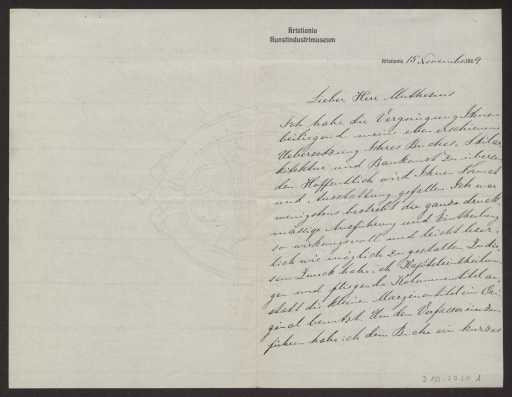 Kristiania
Kunstindustrimuseum
Kristiania 15 November 189
Lieber Herr Muthesius
Ich habe das Vergnügung Ihnen
beiliegend meine eben erschienene
Uebersetzung Ihres Buches, Stilar-
kitektur und Baukunst zu übersen-
den. Hoffentlich wird Ihnen Druck
und Ausstattung gefallen. Ich war
wenigstens bestrebt die ganze druck-
mässige Ausführung und Einteilung
so wirkungsvoll und leicht leser-
lich wie möglich zu gestalten. Zu die-
sem Zweck habe ich Kapiteleinteilun-
gen und fliegende Kolumnentitel an-
statt die kleine Margenartitel im Ori-
ginal benutzt. Um den Verfasser einzu-
führen habe ich dem Buche ein kurzes